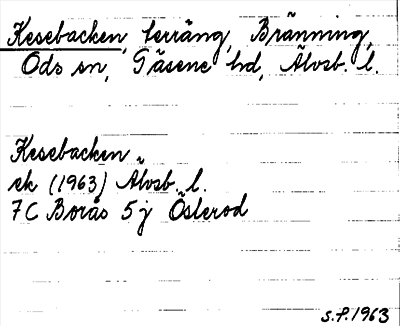 Kesebacken, terräng, Bränning,
Ods sn, Gäsene hd, Älvsb. l.
Kesebacken
ek (1963) Älvsb. l.
7C Borås 5j Östorod
S.P. 1963